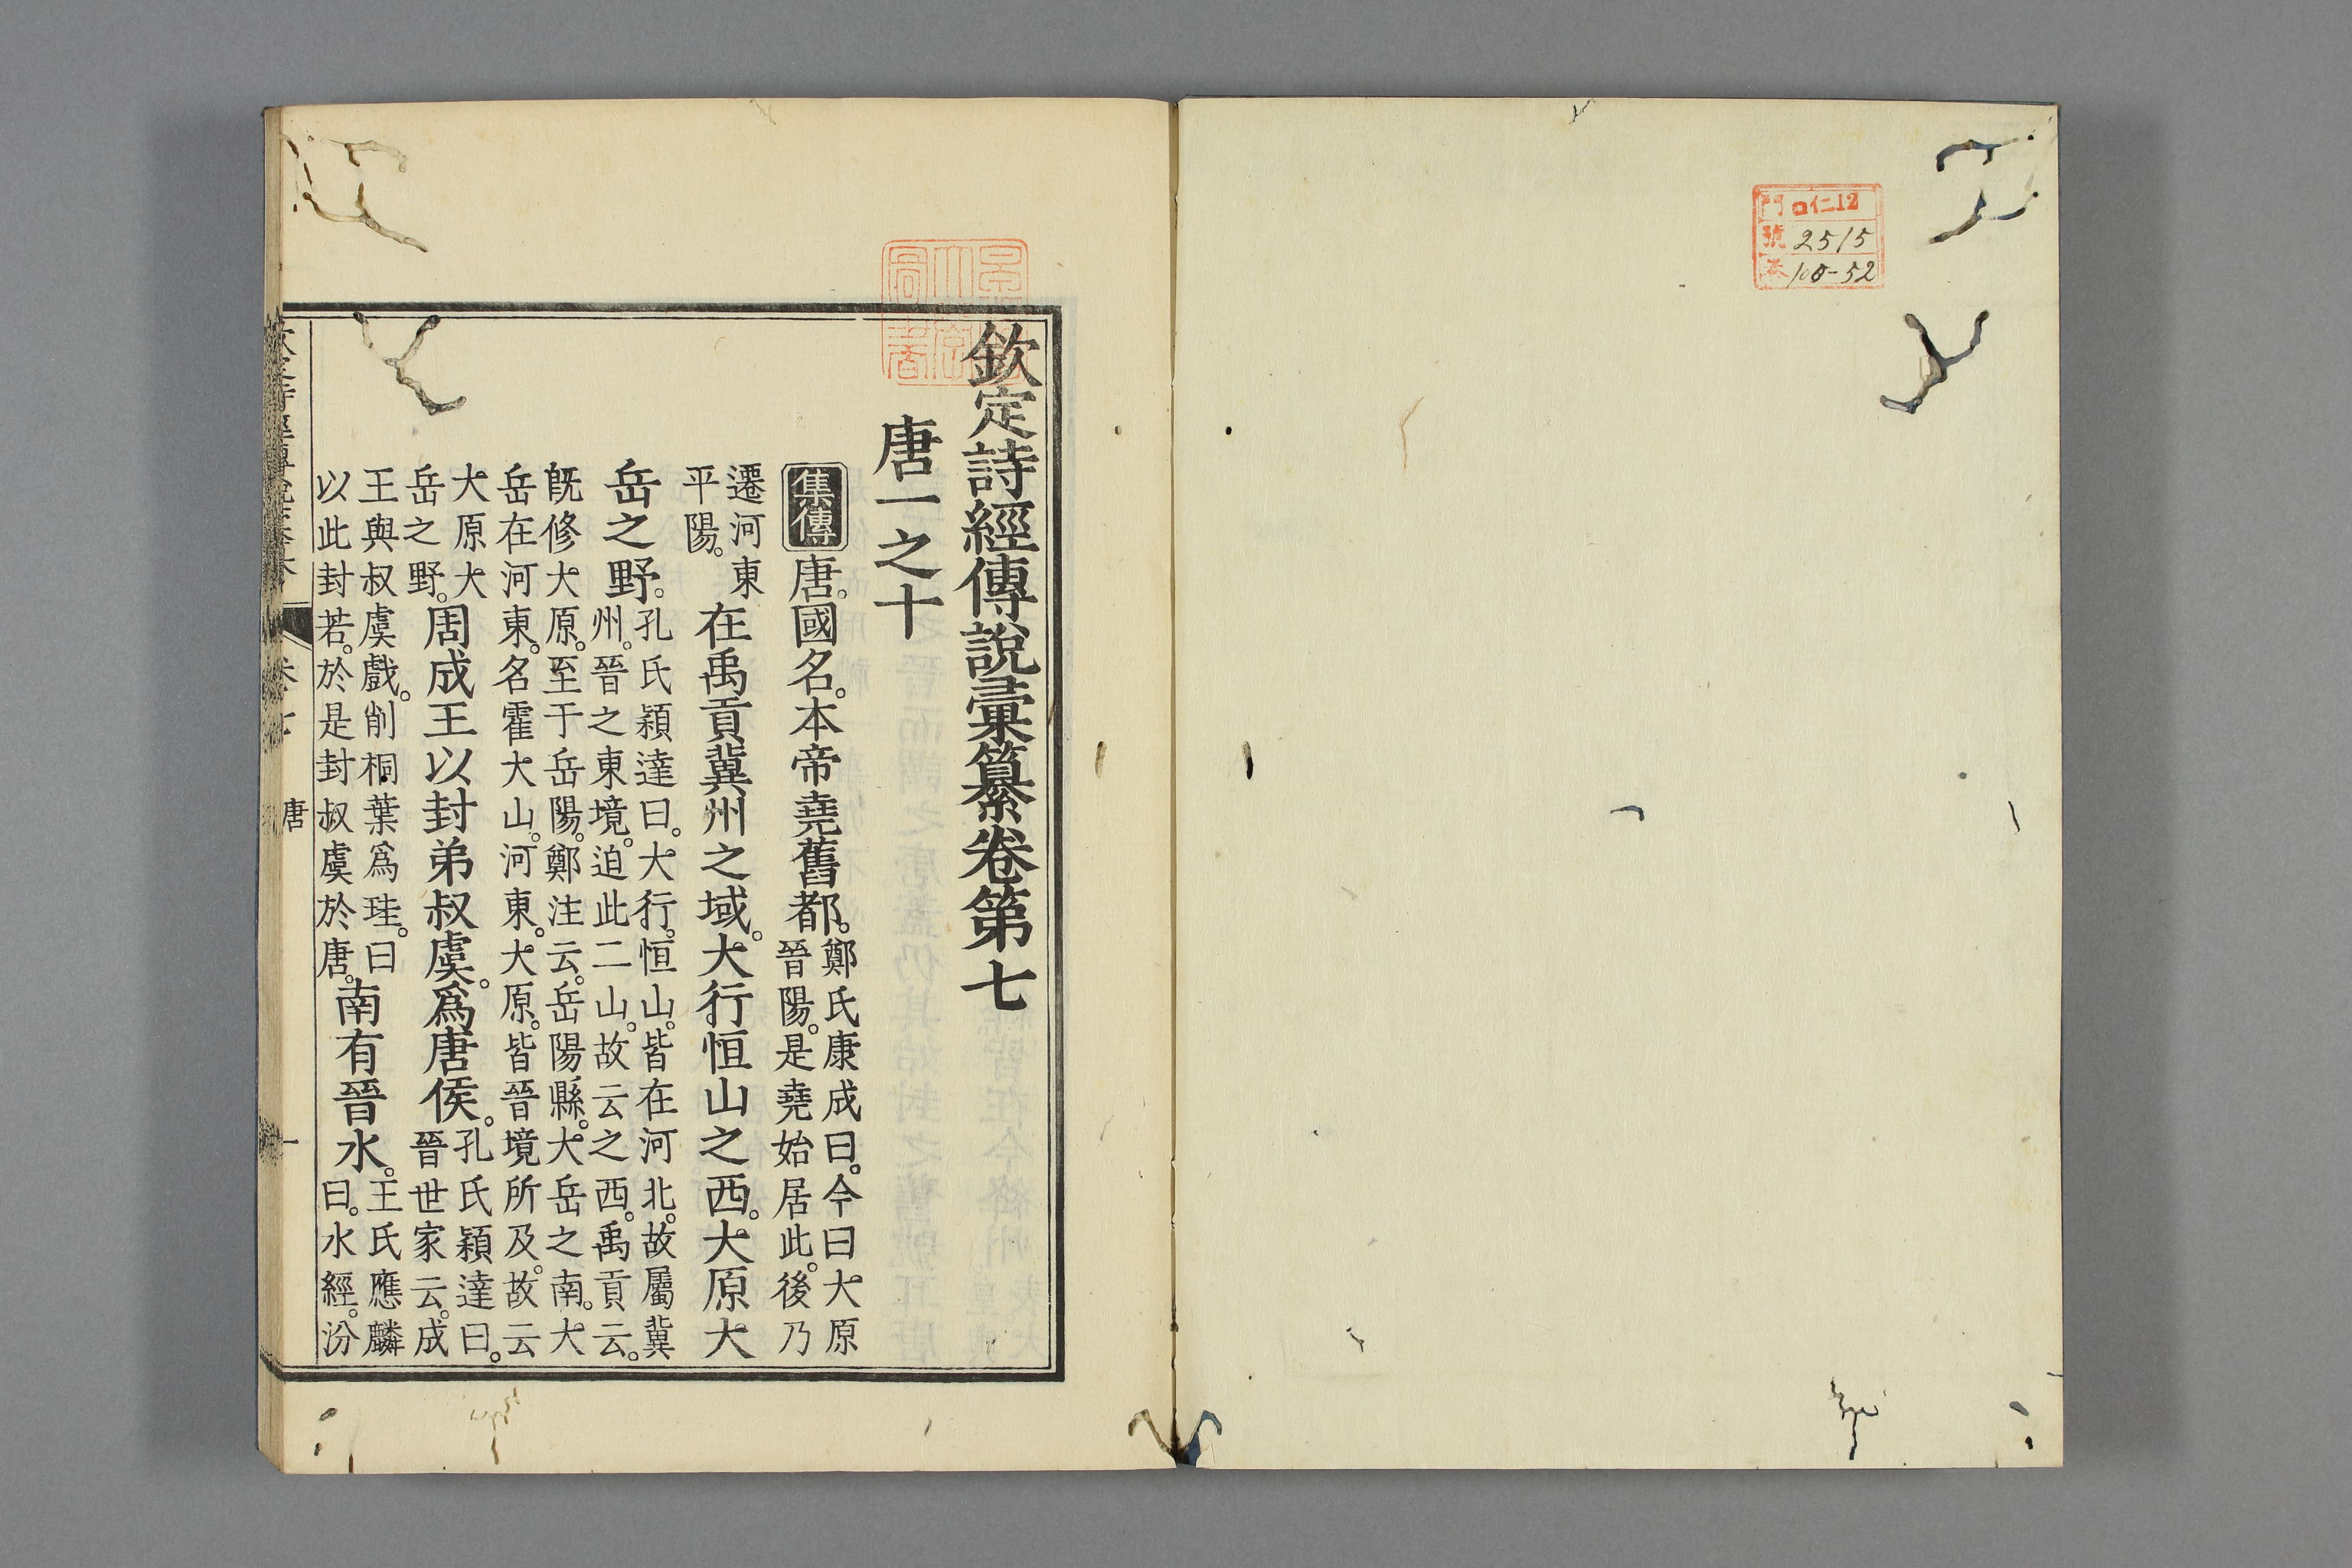 門 ロ仁12
號 2515
卷 100-52
欽定詩經傳說彙纂卷第七
唐一之十
集傳 唐。國名。本帝堯舊都。鄭氏康成曰。今曰大原晉陽。是堯始居此。後乃
遷河東平陽。在禹貢冀州之域。大行恒山之西。大原大
岳之野。孔氏穎達曰。大行。恒山。皆在河北。故屬冀州。晉之東境。迫此二山。故云之西。禹貢云。
旣修大原。至于岳陽。鄭注云。岳陽縣。大岳之南。大岳在河東。名霍大山。河東。大原。皆晉境所及。故云
大原大岳之野。周成王以封弟叔虞。爲唐侯。孔氏穎達曰。晉世家云。成
王與叔虞戲。削桐葉爲珪。曰以此封若。於是封叔虞於唐。南有晉水。王氏應麟曰。水經。汾
卷七 唐 一